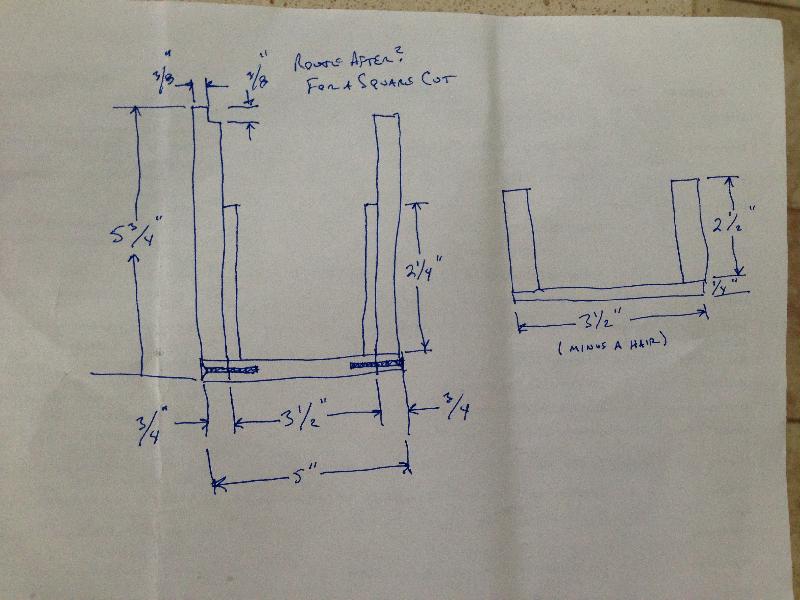 ROUTE AFTER?
FOR A SQUARE CUT
3/8"
3/8"
5 3/4"
2 1/4"
2 1/2"
1/4"
3 1/2"
(MINUS A HAIR)
3/4"
3 1/2"
3/4
5"